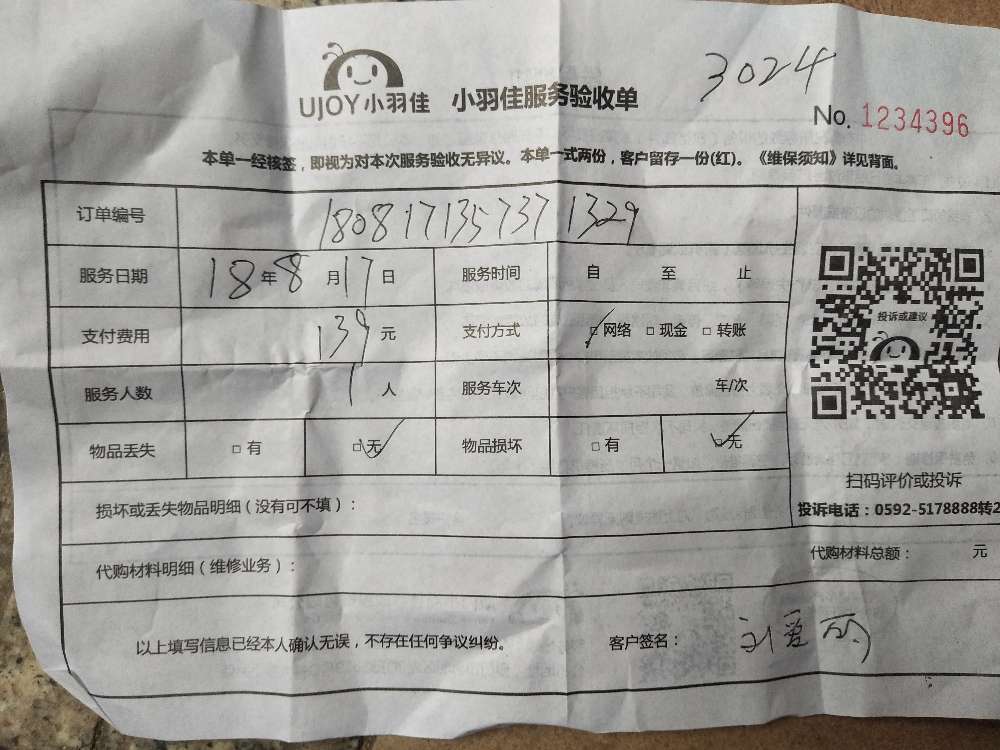 3024
UJOY小羽佳 小羽佳服务验收单
No. 1234396
本单一经核签，即视为对本次服务验收无异议。本单一式两份，客户留存一份(红)。《维保须知》详见背面。
订单编号 180817135737 1329
服务日期 18年8月17日 服务时间 自 至 止
支付费用 139元 支付方式 □网络 □现金 □转账
服务人数 1人 服务车次 车/次
物品丢失 □有 □无 物品损坏 □有 □无
投诉或建议
扫码评价或投诉
投诉电话：0592-5178888转2
损坏或丢失物品明细（没有可不填）：
代购材料明细（维修业务）： 代购材料总额： 元
以上填写信息已经本人确认无误，不存在任何争议纠纷。 客户签名： 刘爱丽